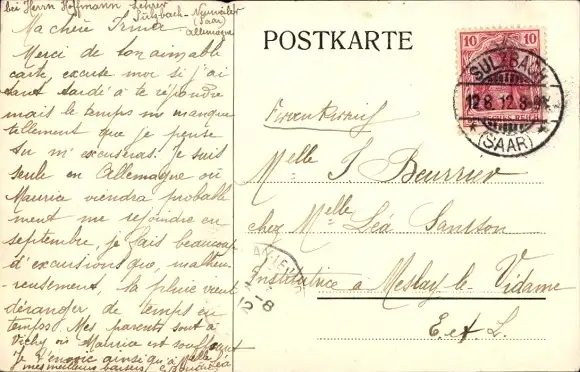 bei Herrn Hoffmann Lehrer
Sulzbach-Neuweiler
(Saar)
Allemagne
Ma chère Irma
Merci de ton aimable
carte, excuse moi si j'ai
tant tardé à te répondre
mais le temps me manque
tellement que je pense
tu m'excuseras. Je suis
seule en Allemagne où
Maurice viendra probable
ment me rejoindre en
septembre, je fais beaucoup
d'excursions que, malheu-
reusement, la pluie vient
déranger de temps en
temps. Mes parents sont à
Vichy où Maurice est souffrant
Je t'envoie ainsi qu'à Melle Léa
mes meilleurs baisers
POSTKARTE
10 10
SULZBACH
12 8. 12 8-9
* (SAAR) *
Frankreich
Melle I Beurrier
chez Melle Léa Sansson
Institutrice à Meslay le Vidame
E. et L.
12-8